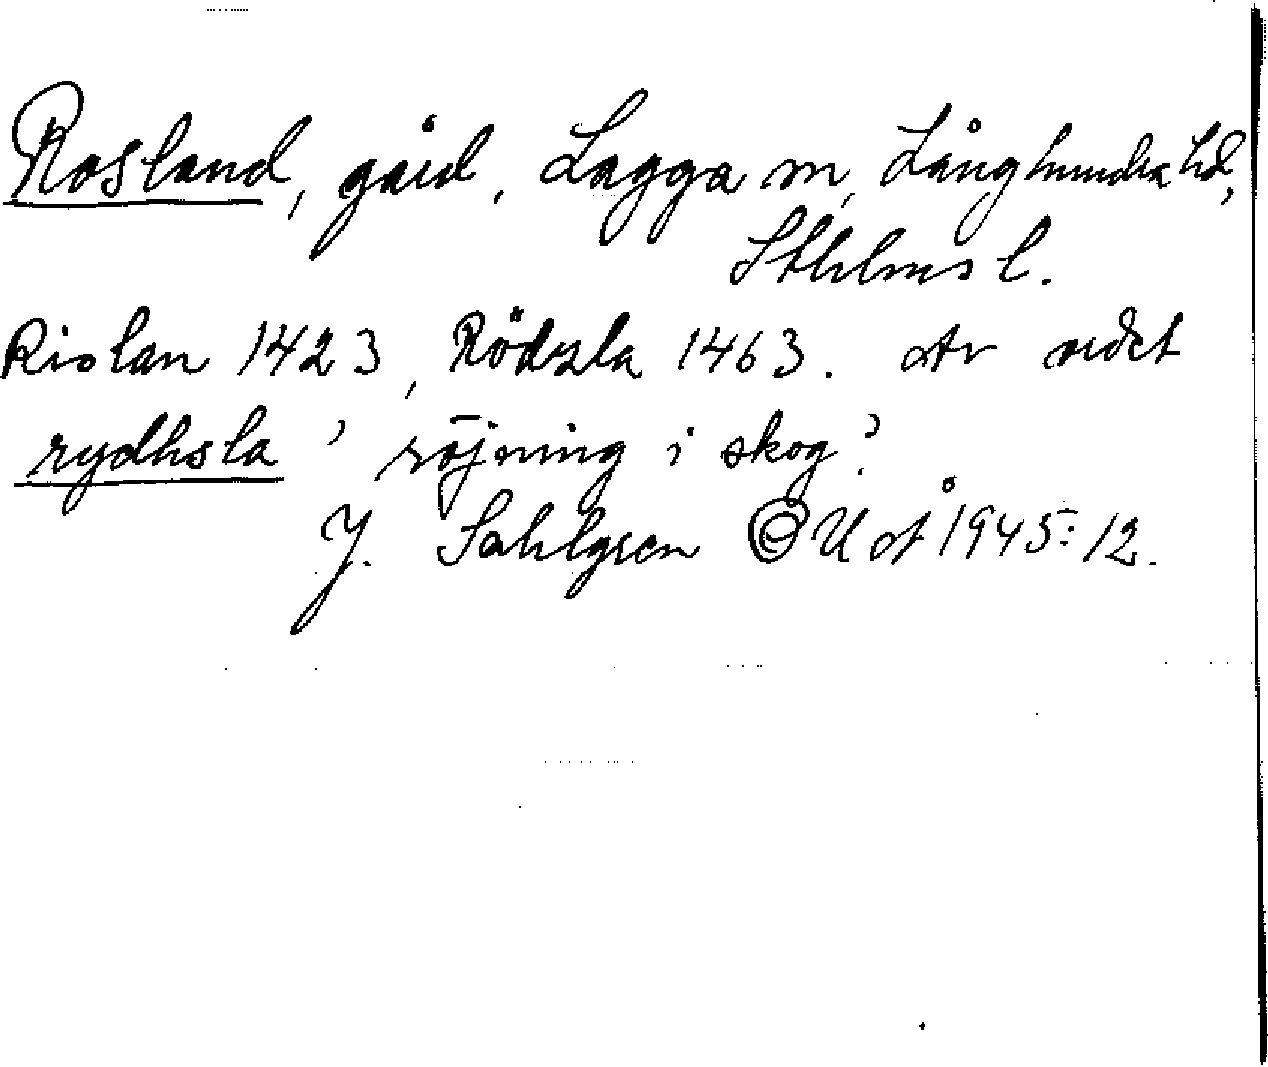 Rosland, gård, Lagga sn, Långhundra hd,
Sthlms l.
Rislan 1423, Rödzla 1463. Av ordet
rydhsla 'röjning i skog'.
J. Sahlgren i UUÅ 1945:12.